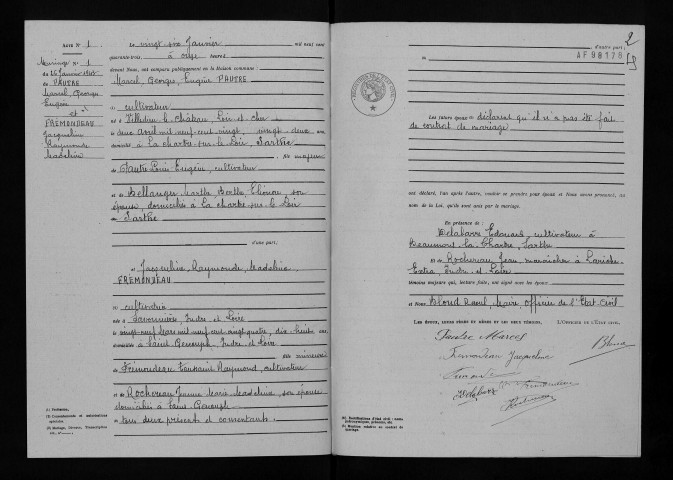 ACTE N° 1
Mariage N° 1
du 26 Janvier 1943
PAUTRE
Marcel, Georges
Eugène
et
FREMONDEAU
Jacqueline
Raymonde
Madeleine
(1) Profession.
(2) Consentements et autorisations
spéciales.
(3) Mariage, Divorce, Transcription
Le vingt six Janvier mil neuf cent
quarante-trois, à onze heures
devant Nous, ont comparu publiquement en la Maison commune :
Marcel, Georges, Eugène PAUTRE
cultivateur
né à Villedieu le château, Loir et cher
le deux avril mil neuf cent vingt, vingt deux ans
domicilié à La chartre sur le Loir, Sarthe
fils majeur
de Pautre Louis Eugène, cultivateur
et de Bellanger Marthe Berthe, son
épouse, domiciliés à La chartre sur le Loir
Sarthe
d'une part,
et Jacqueline Raymonde Madeleine
FREMONDEAU
cultivatrice
née à Savonnières, Indre et Loire
le vingt neuf mil neuf cent vingt quatre, dix huit ans
domiciliée à Saint Genouph, Indre et Loire
fille mineure
de Fremondeau Toussaint Raymond, cultivateur
et de Rochereau Jeanne Marie Madeleine, son épouse
domiciliés à Saint Genouph
tous deux présents et consentants.
2
d'autre part ;
AF98178
Les futurs époux déclarent qu'il n'a pas été fait
de contrat de mariage
ont déclaré, l'un après l'autre, vouloir se prendre pour époux et Nous avons prononcé, au
nom de la Loi, qu'ils sont unis par le mariage.
En présence de :
Delabarre Edouard, cultivateur à
Beaumont la Chartre, Sarthe
Et de Rochereau Jean, maraîcher à Lariche
Extra, Indre et Loire
Témoins majeurs qui, lecture faite, ont signé avec les époux
et Nous Blond Raoul, Maire, Officier de l'Etat-Civil
LES ÉPOUX, LEURS PÈRES ET MÈRES ET LES DEUX TÉMOINS,
L'OFFICIER DE L'ETAT CIVIL,
Pautre Marcel
Fremondeau Jacqueline
Blond
Delabarre
Fremondeau
(5) Mention relative au contrat de
mariage.